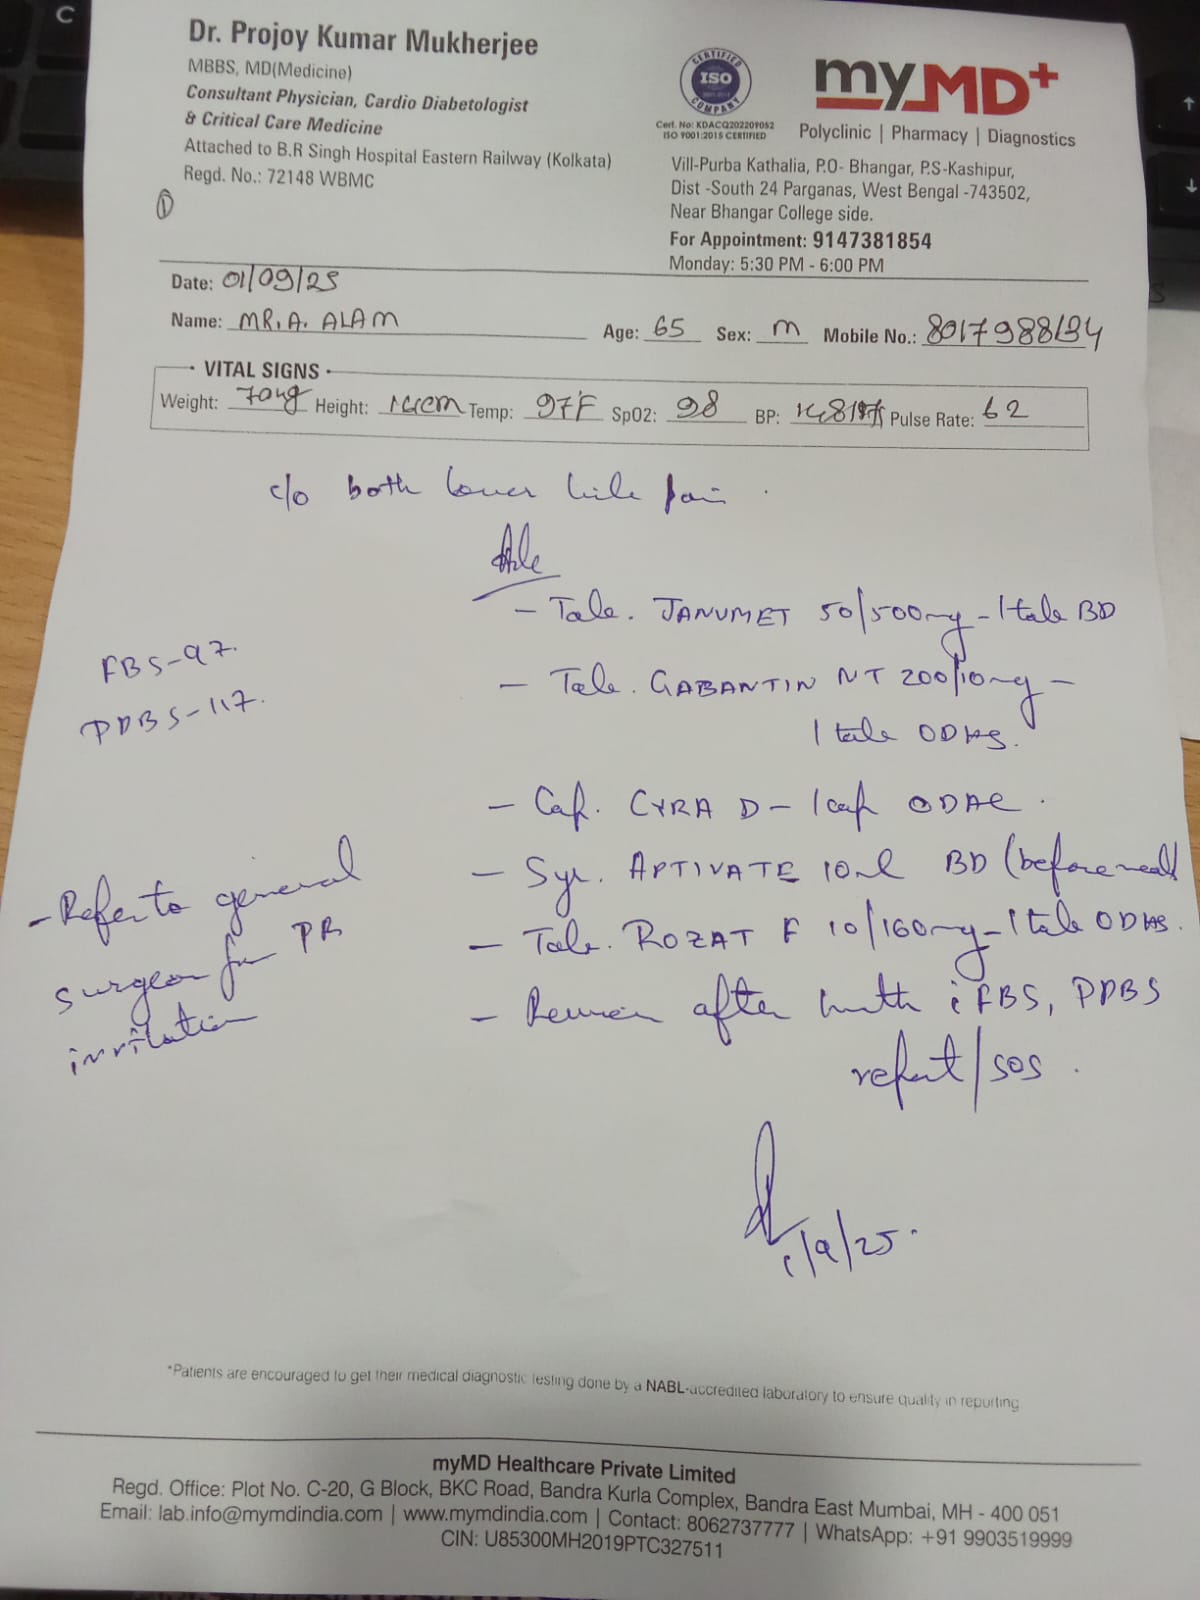 C
Dr. Projoy Kumar Mukherjee
MBBS, MD(Medicine)
Consultant Physician, Cardio Diabetologist
& Critical Care Medicine
Attached to B.R Singh Hospital Eastern Railway (Kolkata)
Regd. No.: 72148 WBMC
CERTIFIED
ISO
COMPANY
Cert. No: KDACQ202209052
ISO 9001:2015 CERTIFIED
myMD+
Polyclinic | Pharmacy | Diagnostics
Vill-Purba Kathalia, P.O- Bhangar, P.S-Kashipur,
Dist -South 24 Parganas, West Bengal -743502,
Near Bhangar College side.
For Appointment: 9147381854
Monday: 5:30 PM - 6:00 PM
Date: 01/09/25
Name: MR. A. ALAM
Age: 65 Sex: M Mobile No.: 8017988134
VITAL SIGNS
Weight: 70kg Height: Temp: 97F SpO2: 98 BP: Pulse Rate: 62
c/o both lower pain.
- Tab. JANUMET 50/500mg - 1 tab BD
FBS-97.
PPBS-117.
- Tab. GABANTIN NT 200/10mg -
1 tab ODHS.
- Cap. CYRA D - 1 cap ODAC.
- Syr. APTIVATE 10ml BD (before meal)
- Tab. ROZAT F 10/160mg - 1 tab ODHS.
- Refer to general
surgeon for PR
irritation
- Review after month c FBS, PPBS
report/SOS.
1/9/25.
*Patients are encouraged to get their medical diagnostic testing done by a NABL-accredited laboratory to ensure quality in reporting
myMD Healthcare Private Limited
Regd. Office: Plot No. C-20, G Block, BKC Road, Bandra Kurla Complex, Bandra East Mumbai, MH - 400 051
Email: lab.info@mymdindia.com | www.mymdindia.com | Contact: 8062737777 | WhatsApp: +91 9903519999
CIN: U85300MH2019PTC327511